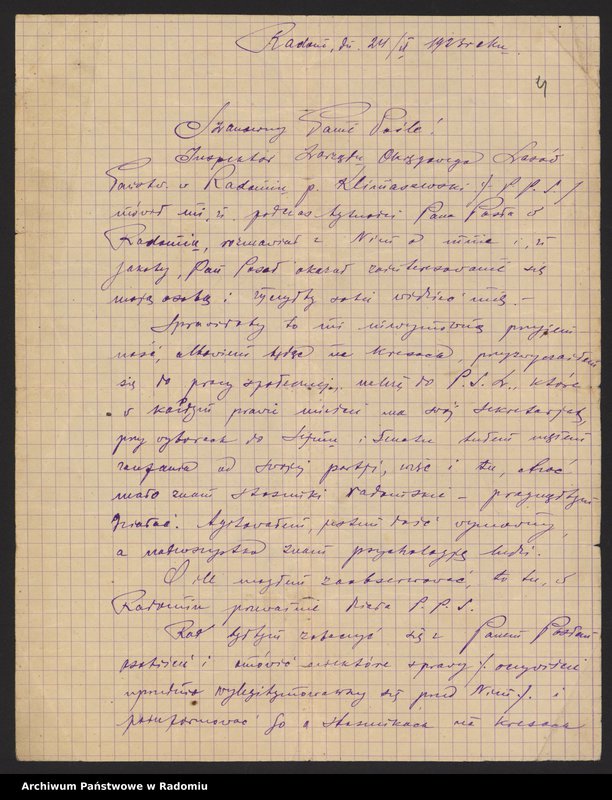 Radom, dn. 24/II 1923 roku.
4
Szanowny Panie Pośle!
Inspektor Zarządu Okręgowego Lasów
Państw. w Radomiu, p. Klimaszewski /P.P.S./
mówił mi, iż podczas bytności Pana Posła w
Radomiu, rozmawiał z Nim o mnie i, iż
jakoby, Pan Poseł okazał zainteresowanie się
moją osobą i życzyłby sobie widzieć mię. –
Sprawiłoby to mi niewymowną przyjem
ność, albowiem będąc na Kresach, przyzwyczaiłem
się do pracy społecznej, należę do P.S.L., które
w każdym prawie mieście ma swój sekretarjat,
przy wyborach do Sejmu i Senatu byłem mężem
zaufania od swojej partji, więc i tu, choć
mało znam stosunki radomskie – pragnąłbym
działać. Agitowałem, jestem dość wymowny,
a nadewszystko znam psychologję ludzi.
O ile mogłem zaobserwować, to tu, w
Radomiu przeważnie działa P.P.S.
Rad byłbym zobaczyć się z Panem Posłem
osobiście i omówić niektóre sprawy /oczywiście
uprzednio wylegitymowawszy się przed Nim/ i
poinformować Go o stosunkach na Kresach
Archiwum Państwowe w Radomiu